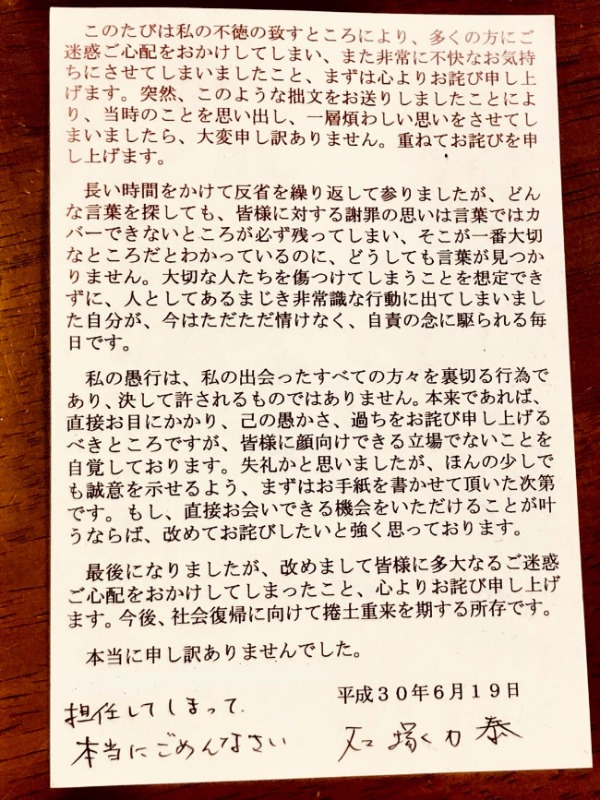 このたびは私の不徳の致すところにより、多くの方にご
迷惑ご心配をおかけしてしまい、また非常に不快なお気持
ちにさせてしまいましたこと、まずは心よりお詫び申し上
げます。突然、このような拙文をお送りしましたことによ
り、当時のことを思い出し、一層煩わしい思いをさせてし
まいましたら、大変申し訳ありません。重ねてお詫びを申
し上げます。
長い時間をかけて反省を繰り返して参りましたが、どん
な言葉を探しても、皆様に対する謝罪の思いは言葉ではカ
バーできないところが必ず残ってしまい、そこが一番大切
なところだとわかっているのに、どうしても言葉が見つか
りません。大切な人たちを傷つけてしまうことを想定でき
ずに、人としてあるまじき非常識な行動に出てしまいまし
た自分が、今はただただ情けなく、自責の念に駆られる毎
日です。
私の愚行は、私の出会ったすべての方々を裏切る行為で
あり、決して許されるものではありません。本来であれば、
直接お目にかかり、己の愚かさ、過ちをお詫び申し上げる
べきところですが、皆様に顔向けできる立場でないことを
自覚しております。失礼かと思いましたが、ほんの少しで
も誠意を示せるよう、まずはお手紙を書かせて頂いた次第
です。もし、直接お会いできる機会をいただけることが叶
うならば、改めてお詫びしたいと強く思っております。
最後になりましたが、改めまして皆様に多大なるご迷惑
ご心配をおかけしてしまったこと、心よりお詫び申し上げ
ます。今後、社会復帰に向けて捲土重来を期する所存です。
本当に申し訳ありませんでした。
平成30年6月19日
担任してしまって、
本当にごめんなさい
石塚力泰